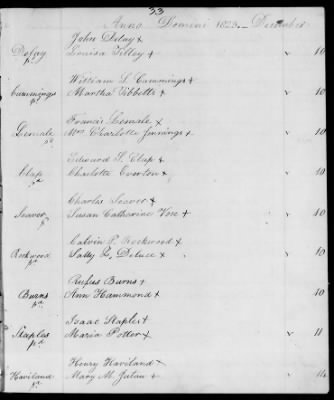 33
Anno Domini 1823. December
John Delay x
Delay Louisa Tilley x 10
pd
William L Cummings +
Cummings Martha Tibbetts + 10
pd
Francis Lemale x
Lemale Mrs Charlotte Jennings x 10
pd
Edward S. Clap +
Clap Charlotte Everton x 10
pd
Charles Seaver +
Seaver Susan Catharine Vose + 10
pd
Calvin P. Rockwood x
Rockwood Sally L. Deluce x 10
pd
Rufus Burns +
Burns Ann Hammond x 10
pd
Isaac Staples +
Staples Maria Potter x 11
pd
Henry Haviland x
Haviland Mary M. +
pd